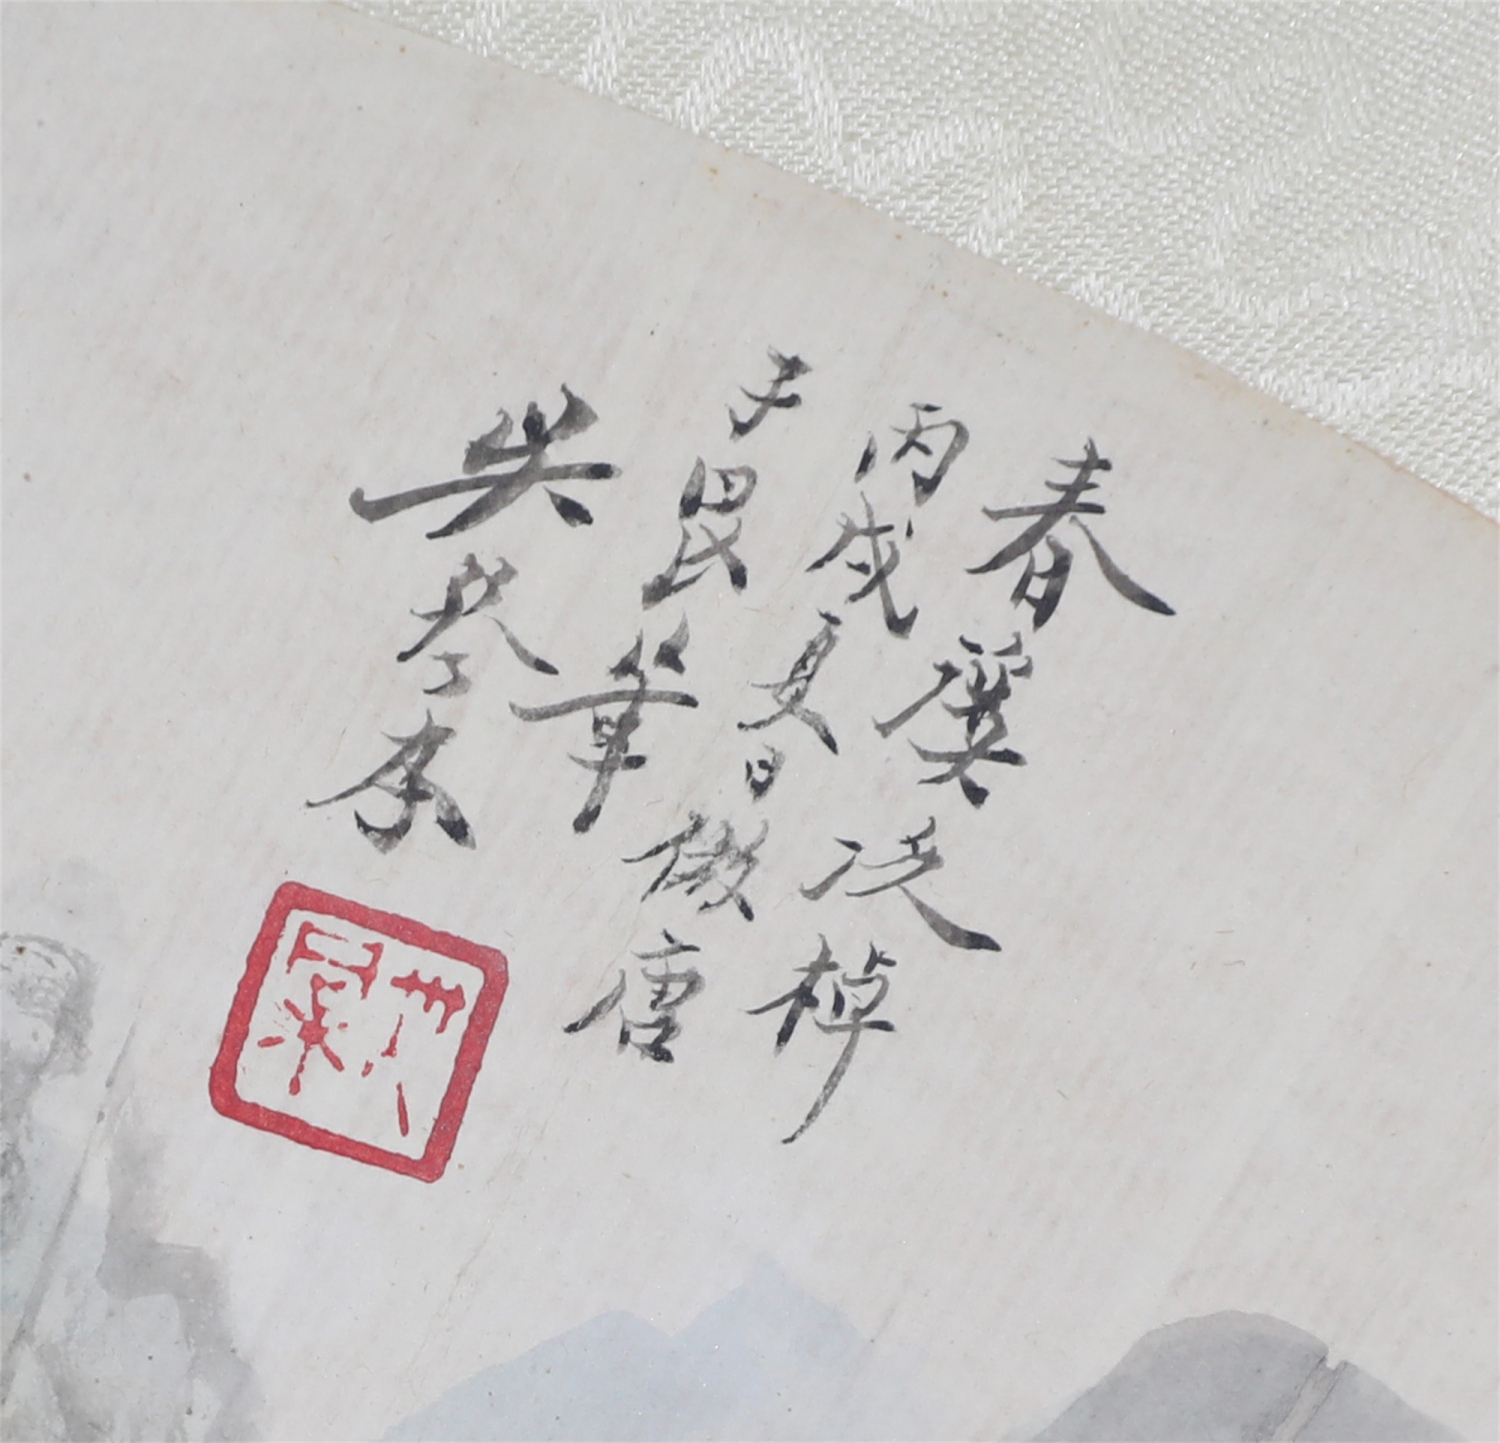 春溪泛棹
丙戌夏日倣唐
子畏筆
吴琴木